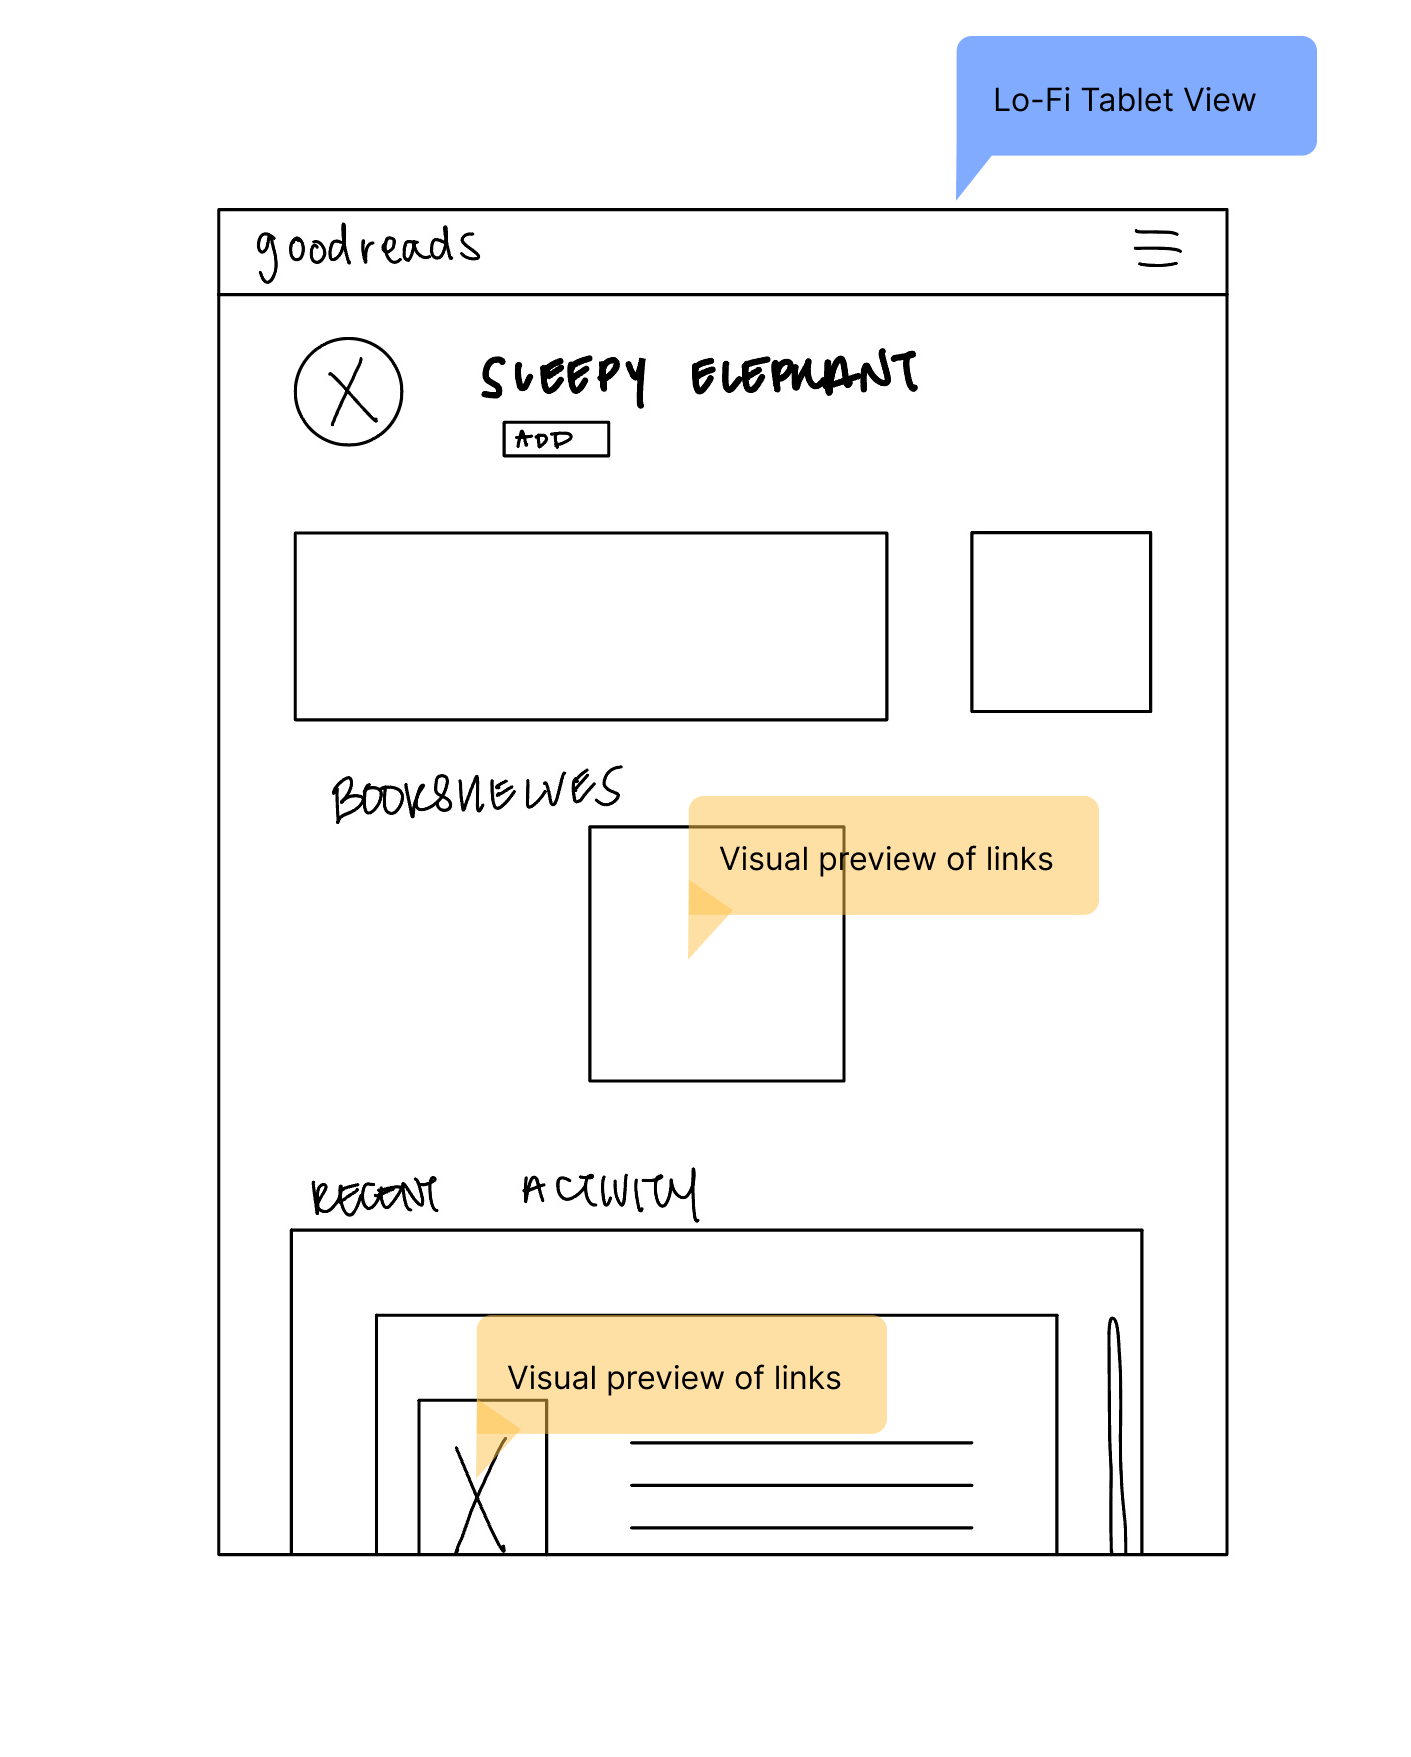 Lo-Fi Tablet View
goodreads
SLEEPY ELEPHANT
ADD
BOOKSHELVES
Visual preview of links
RECENT ACTIVITY
Visual preview of links